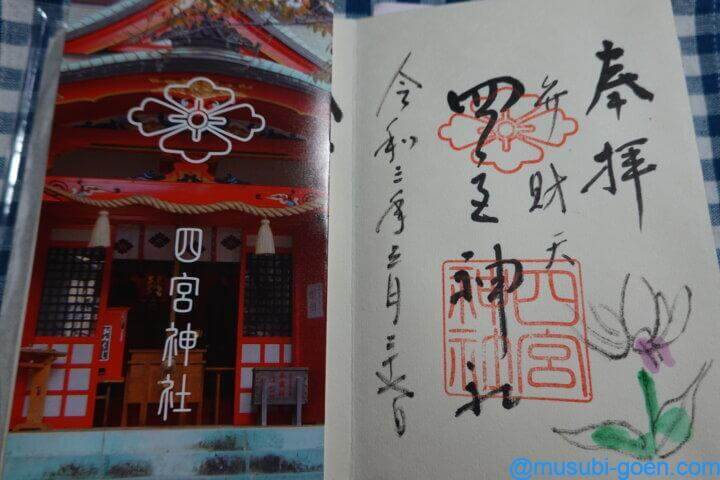 四宮神社
おみくじ
奉拝
弁財天
四宮神社
四宮神社
令和三年三月二十七日
@musubi-goen.com